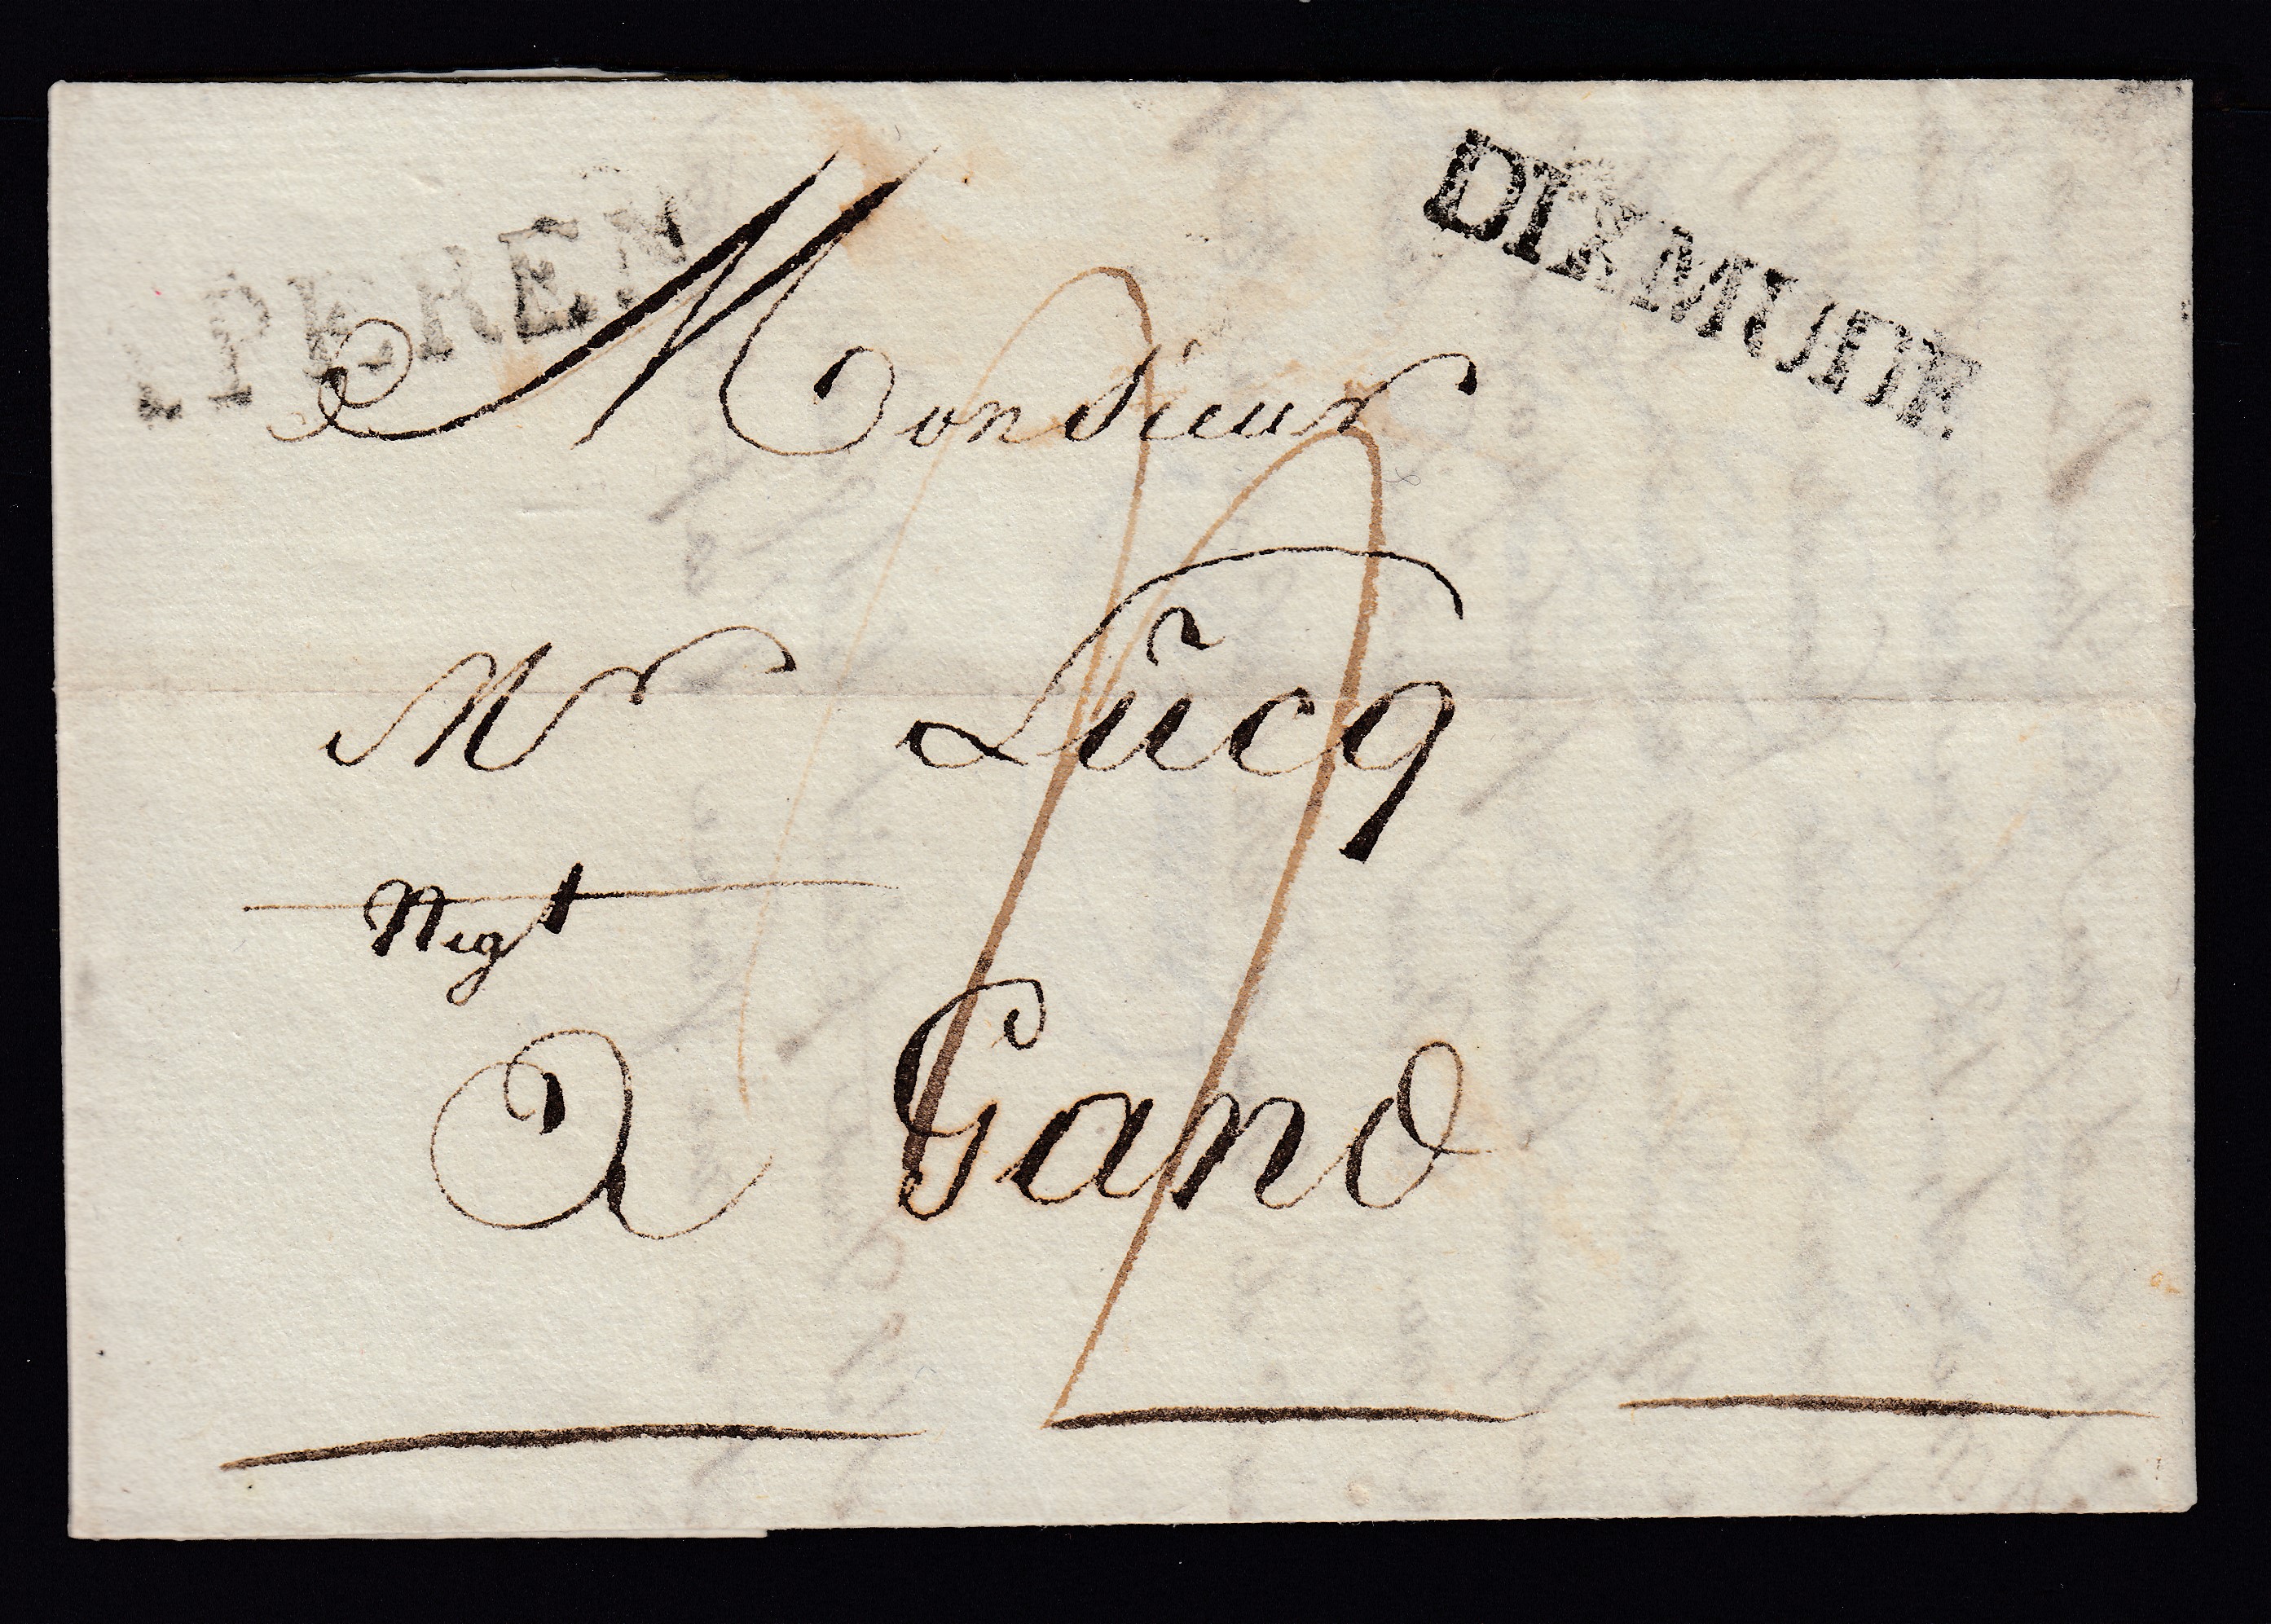 IPEREN
DIXMUDE
Monsieur
Mr Lûcq
Negt
A Gand